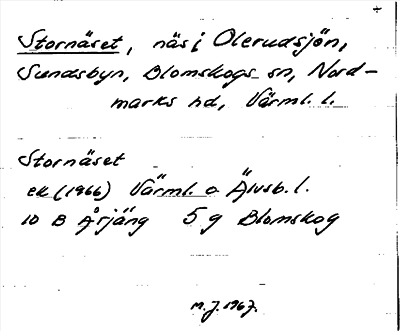 Stornäset, näs i Olerudsjön,
Sundsbyn, Blomskogs sn, Nord-
marks hd, Värml. l.
Stornäset
ek (1966) Värml. o Älvsb. l.
10 B Årjäng 5 g Blomskog
M. J. 1967.